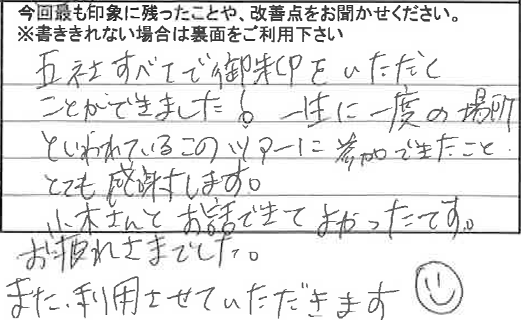 今回最も印象に残ったことや、改善点をお聞かせください。
※書ききれない場合は裏面をご利用下さい
五社すべてで御朱印をいただく
ことができました！一生に一度の場所
といわれているこのツアーに参加できたこと
とても感謝します。
小木さんとお話できてよかったです。
お疲れさまでした。
また、利用させていただきます